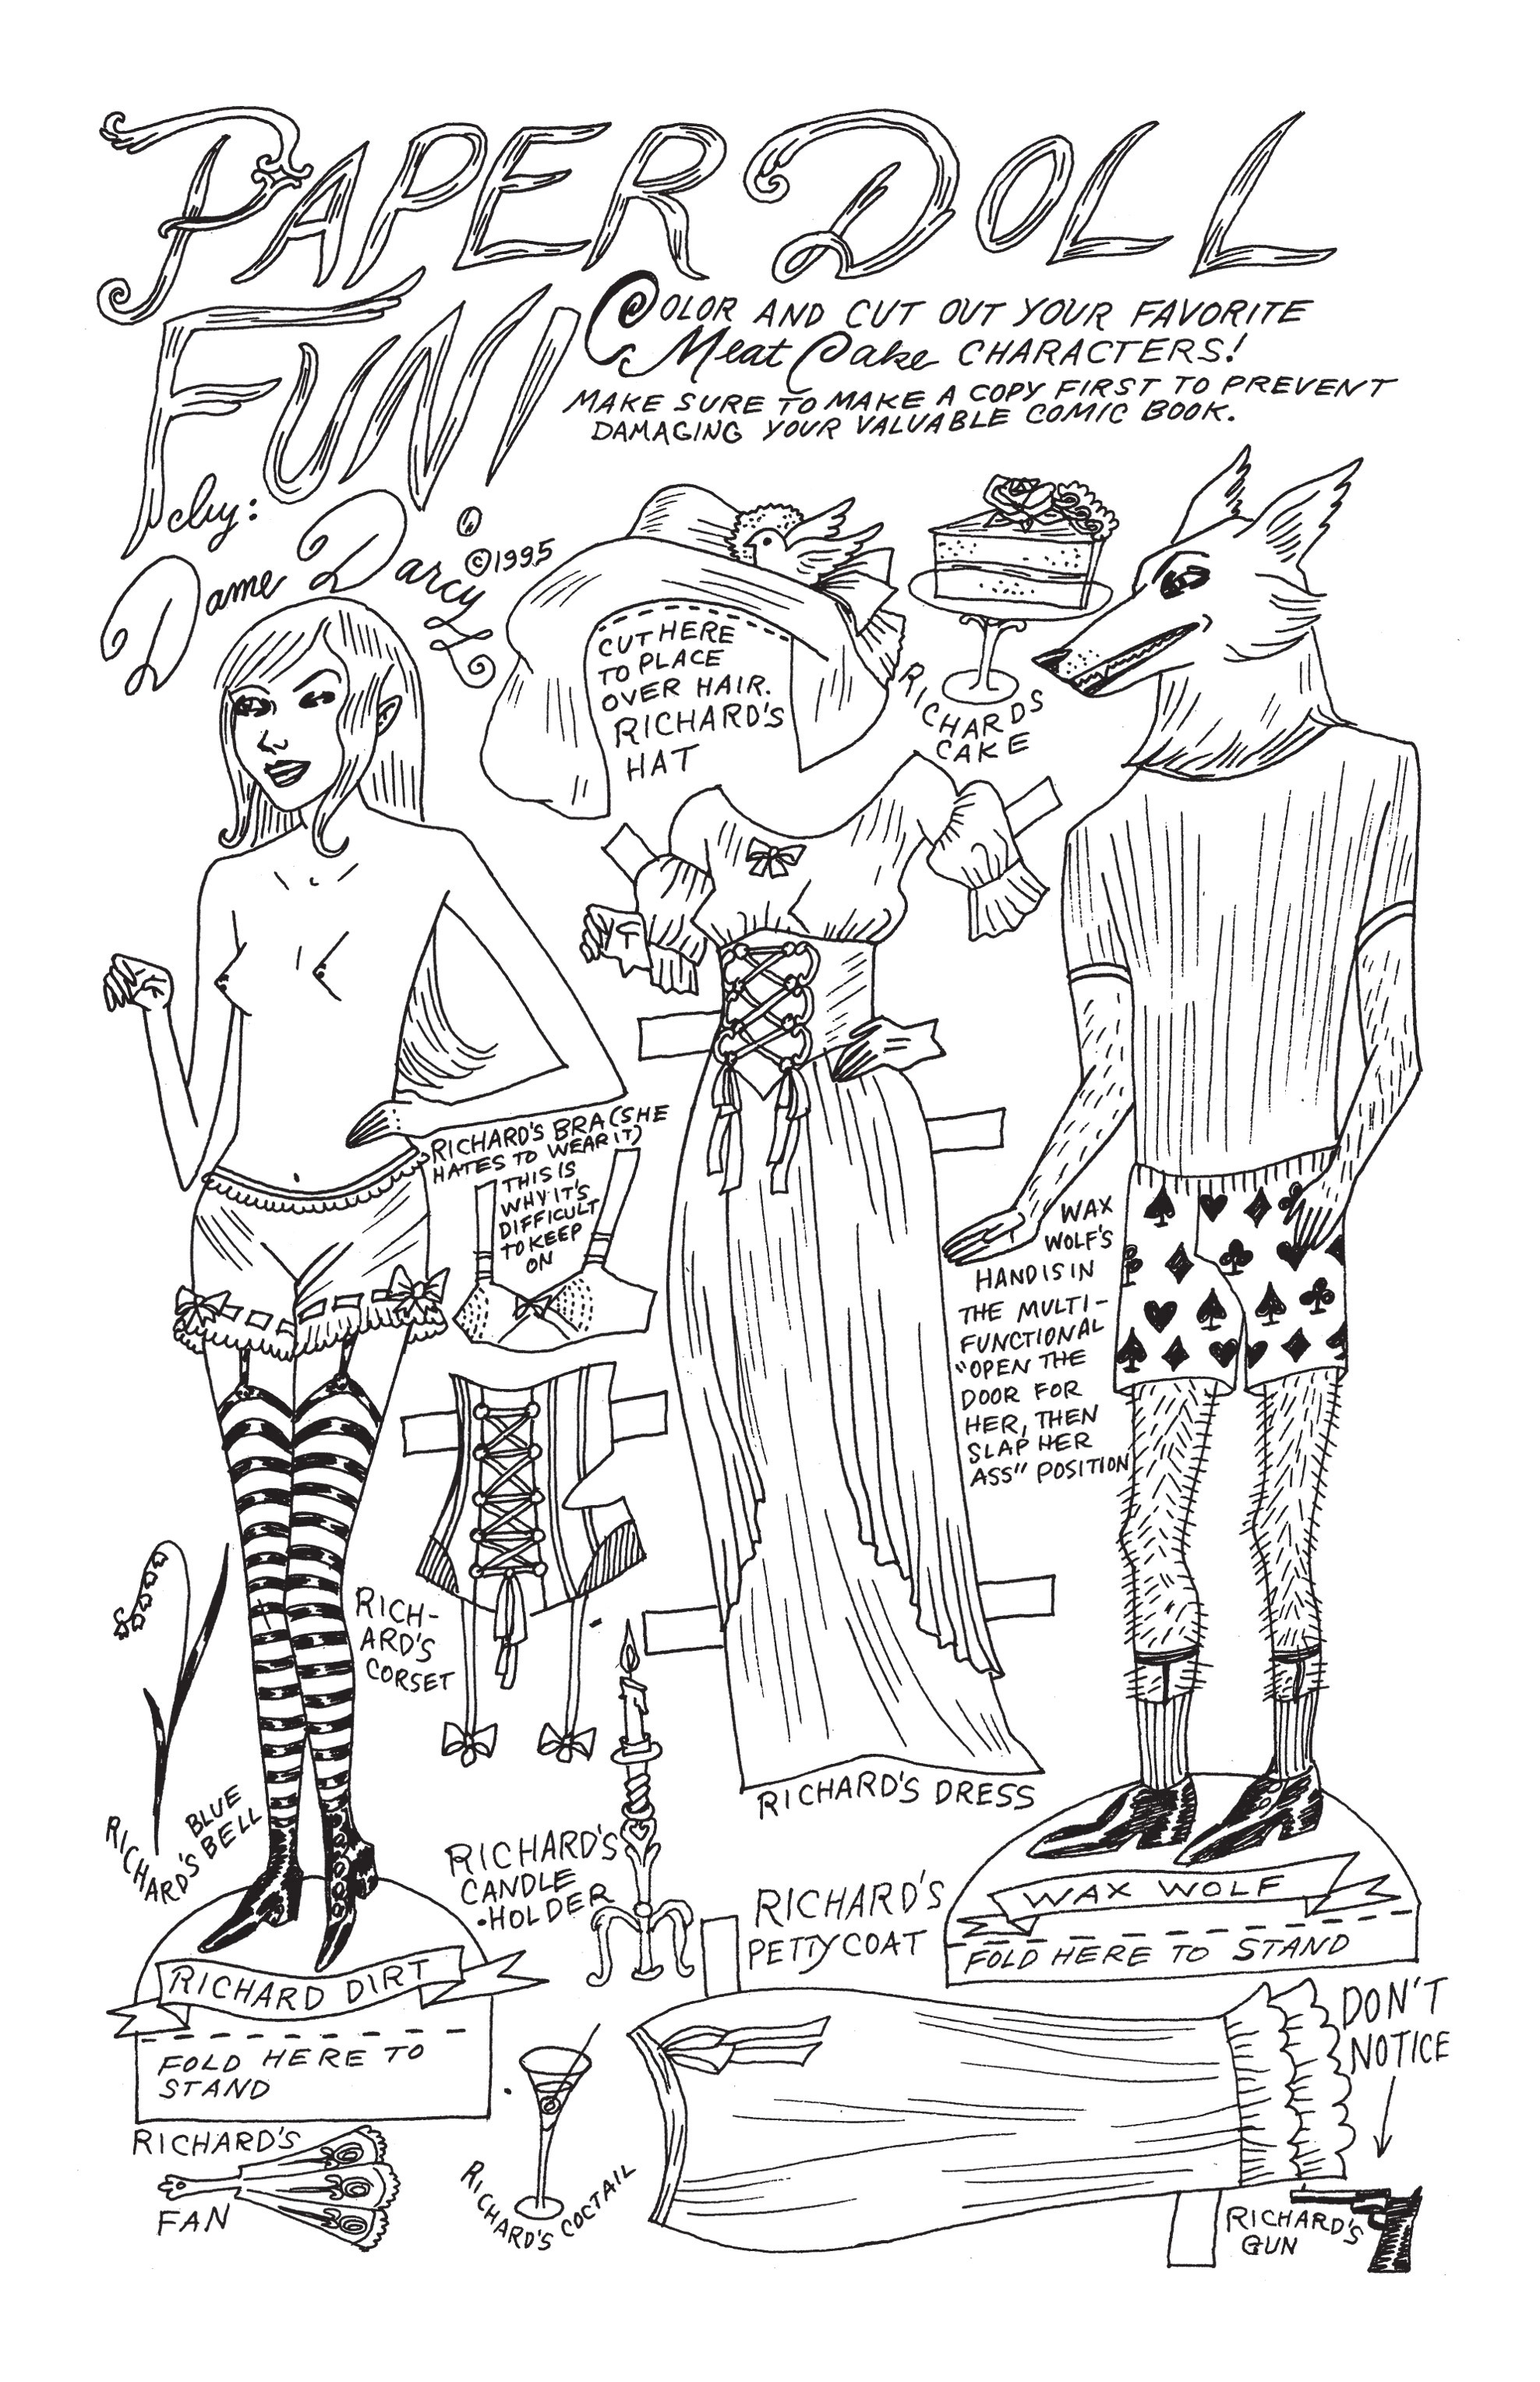 PAPER DOLL
FUN!
COLOR AND CUT OUT YOUR FAVORITE
Meat Cake CHARACTERS!
MAKE SURE TO MAKE A COPY FIRST TO PREVENT
DAMAGING YOUR VALUABLE COMIC BOOK.
by:
Dame Darcy
©1995
CUT HERE
TO PLACE
OVER HAIR.
RICHARD'S
HAT
RICHARDS
CAKE
RICHARD'S BRA (SHE
HATES TO WEAR IT)
THIS IS
WHY IT'S
DIFFICULT
TO KEEP
ON
WAX
WOLF'S
HAND IS IN
THE MULTI-
FUNCTIONAL
"OPEN THE
DOOR FOR
HER, THEN
SLAP HER
ASS" POSITION
RICH-
ARD'S
CORSET
RICHARD'S DRESS
RICHARD'S
BLUE
BELL
RICHARD'S
CANDLE
HOLDER
RICHARD'S
PETTYCOAT
WAX WOLF
FOLD HERE TO STAND
RICHARD DIRT
FOLD HERE TO
STAND
DON'T
NOTICE
RICHARD'S
FAN
RICHARD'S COCTAIL
RICHARD'S
GUN